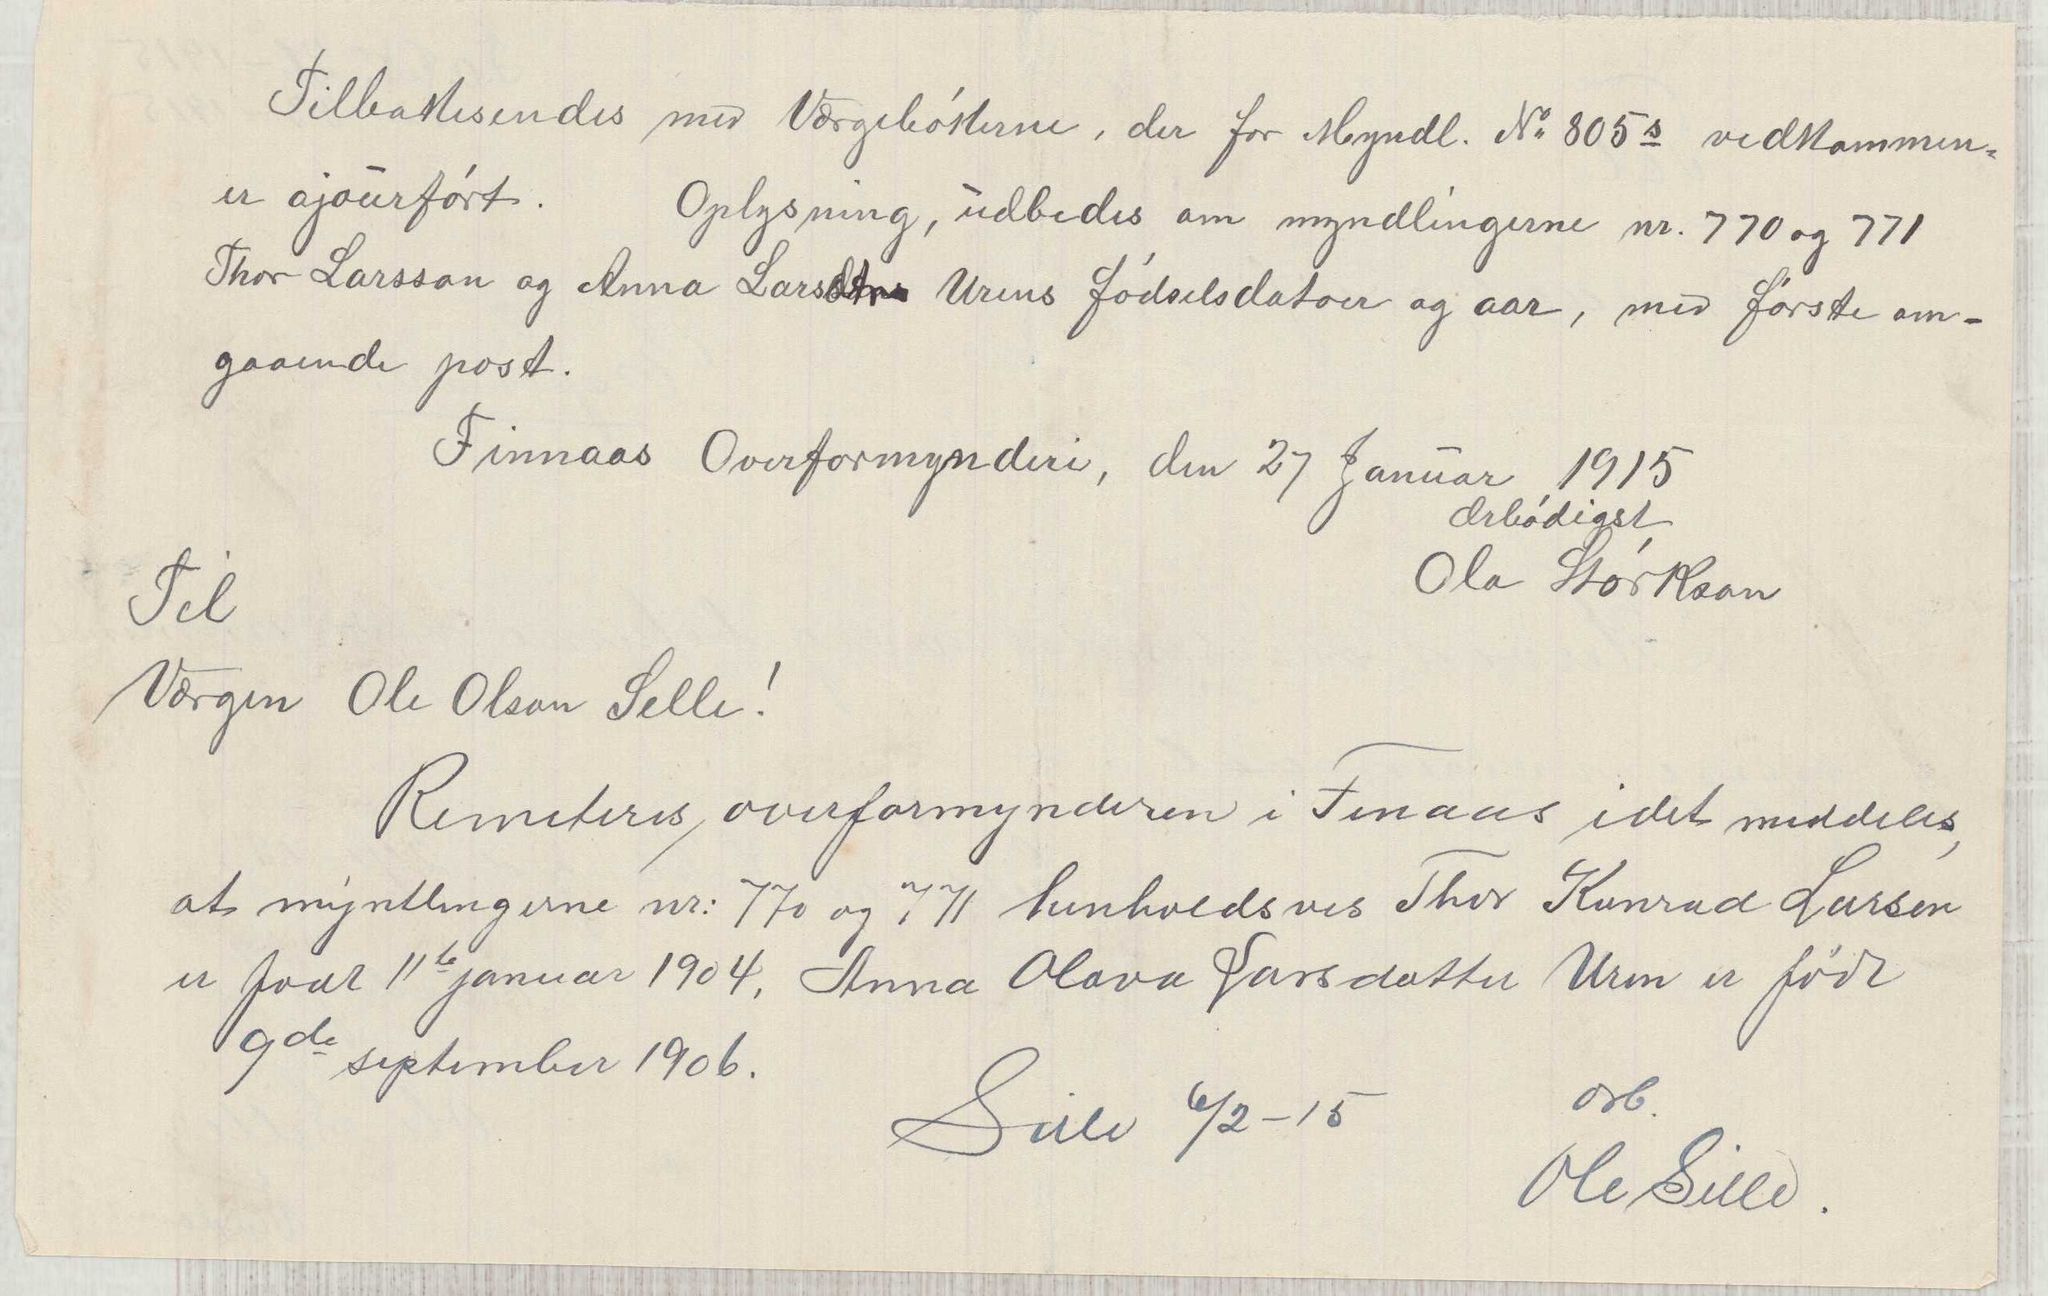 Tilbakesendes med Værgebókerne, der for Myndl. No 805s vedkommen-
er ajoŭrfórt. Oplysning, ŭdbedes om myndlingerne nr. 770 og 771
Thor Larsson og Anna Larsdtr Urens fódselsdatoer og aar, med fórste om-
gaaende post.
Finnaas Overformynderi, den 27 Janŭar 1915
ærbódigst
Ola Stórkson
Til
Værgen Ole Olson Selle!
Remeteres, overformynderen i Finaas idet meddeles,
at myntlingerne nr: 770 og 771 henholdsves Thor Konrad Larsen
er født 11te januar 1904, Anna Olava Larsdatter Uren er født
9de september 1906.
Sille 6/2-15
ærb.
Ole Sille.